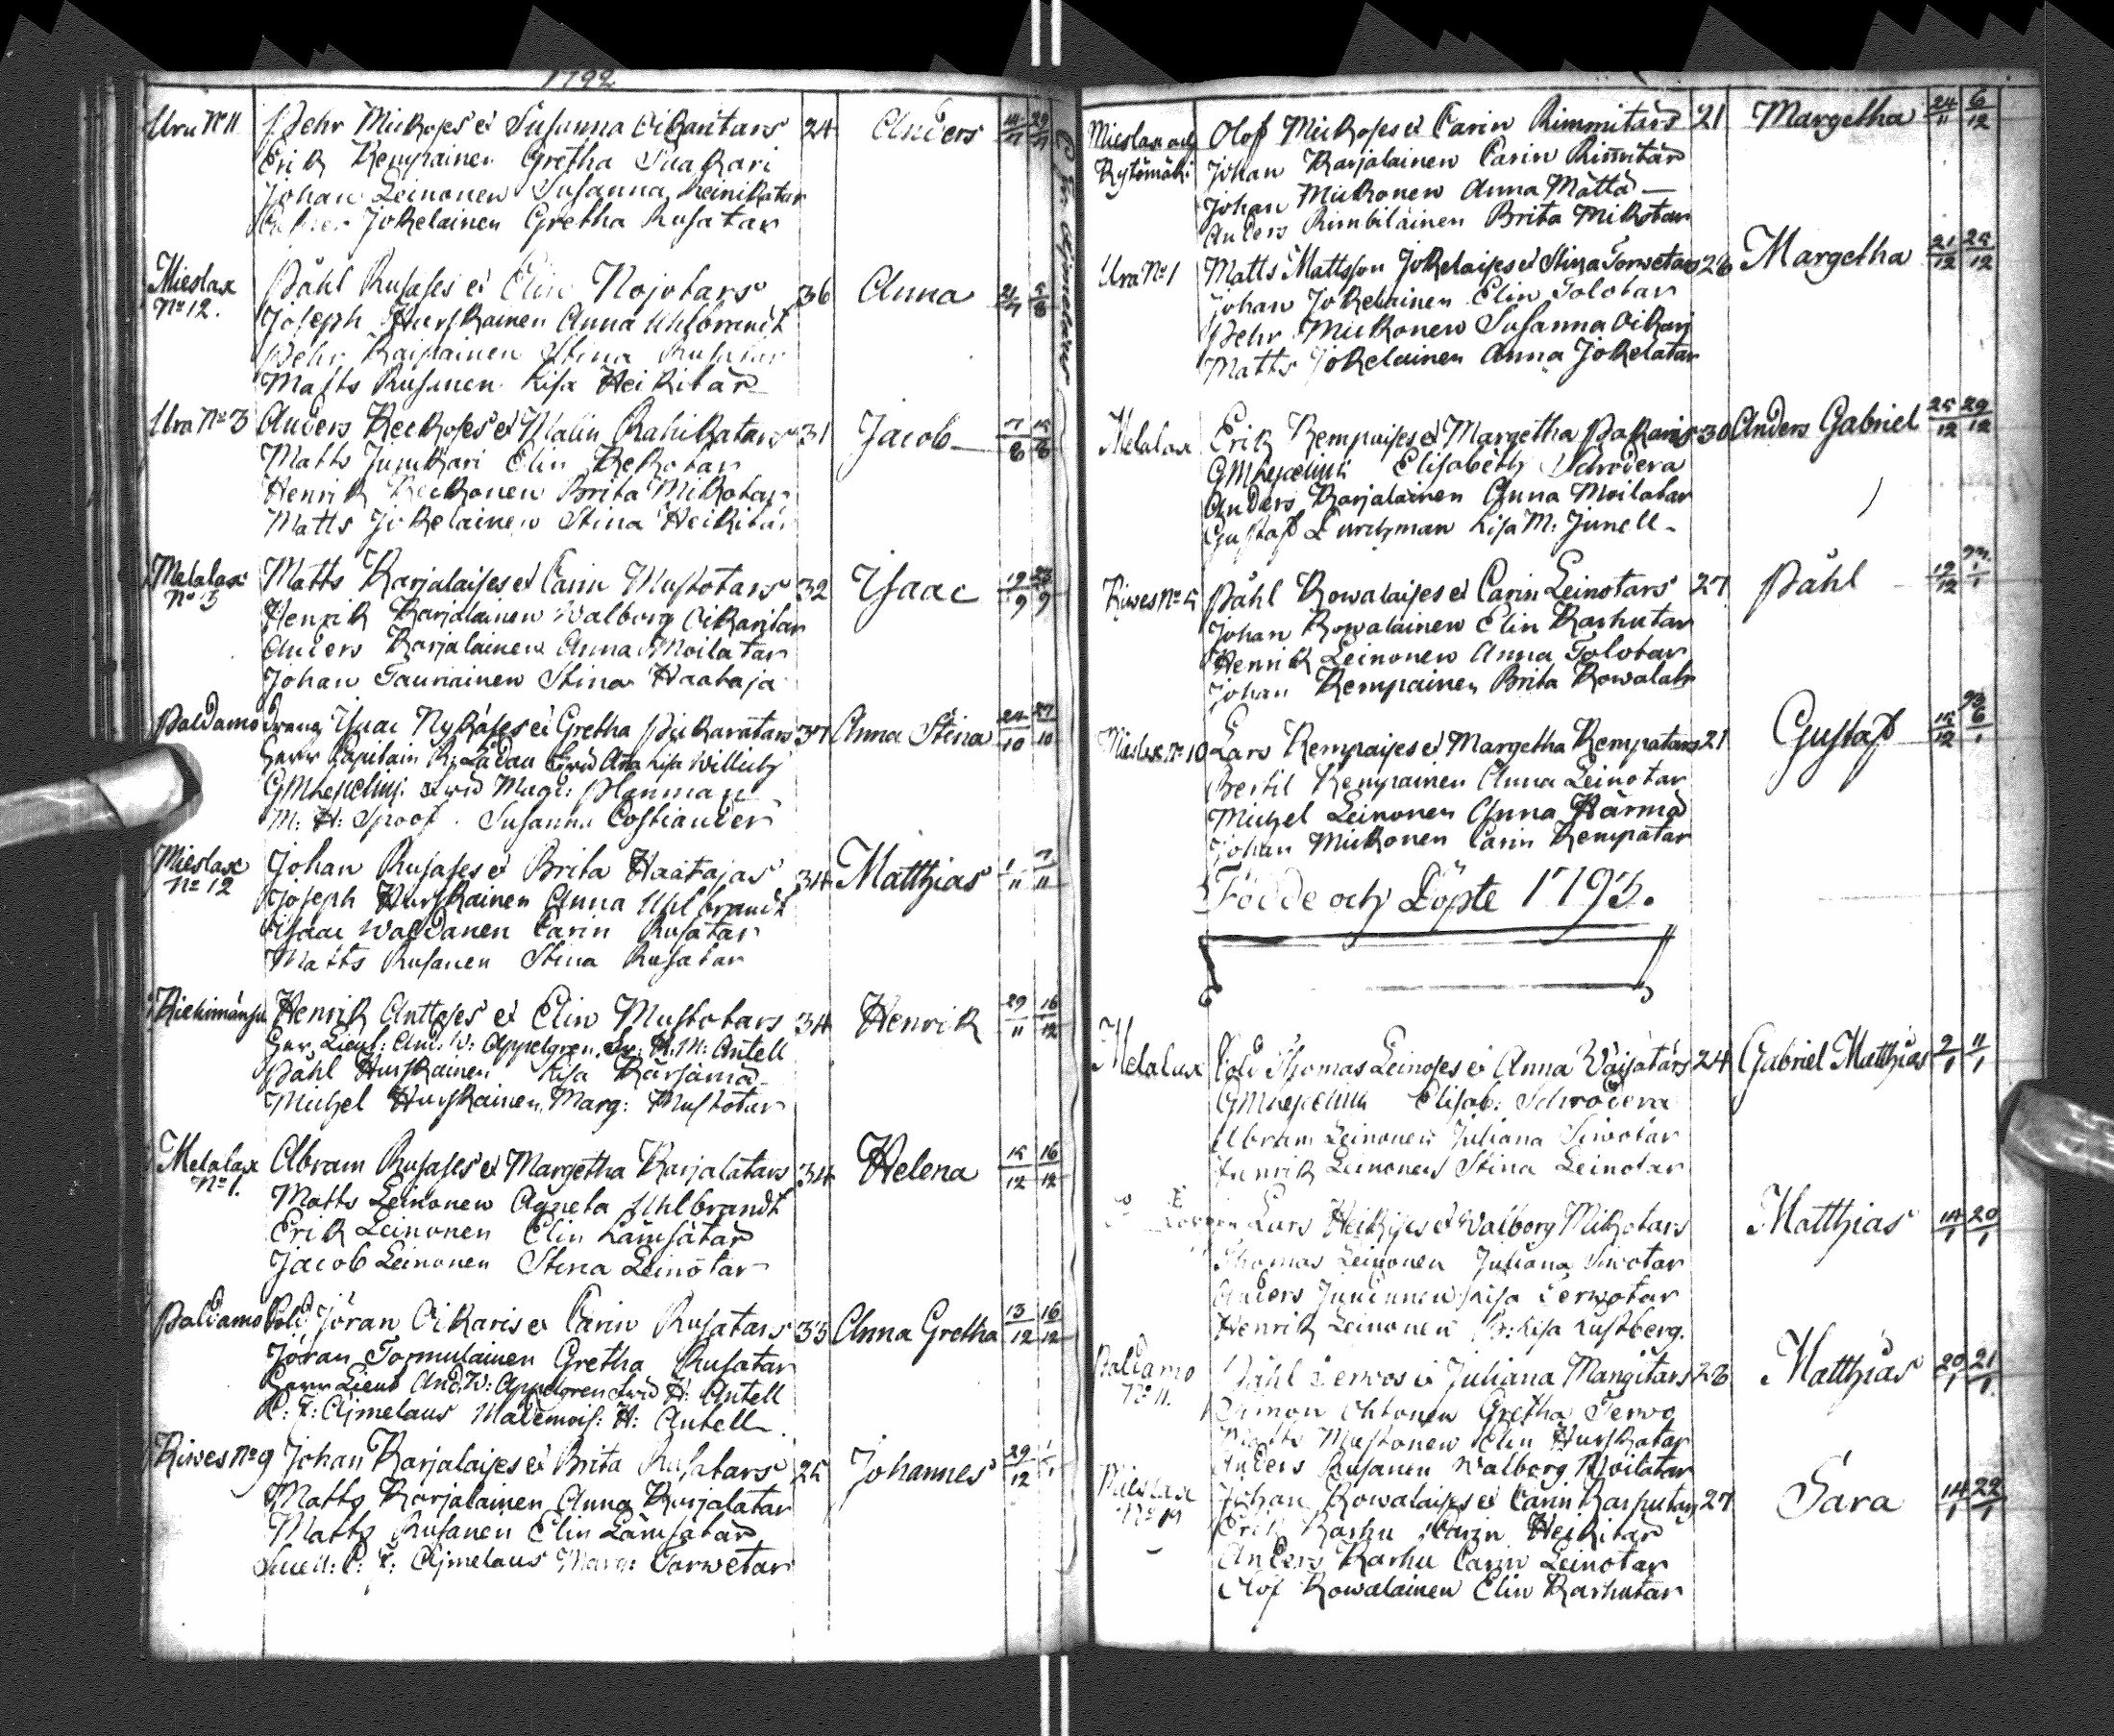 1792
Ura No 11 Pehr Mickoses et Susanna Oikaritars 24 Anders 14/7 29/7
Erik Kempainen Gretha Saukari
Johan Leinonen Susanna Reinikatar
Jokelainen Gretha Rusatar
Mieslax Påhl Rusases et Elin Nojotars 36 Anna 21/7 5/8
No 12. Joseph Hurskainen Anna Uhlbrandt
Pehr Kaipainen Stina Rusatar
Matts Rusanen Lisa Heikitär
Ura No 3 Anders Keckoses et Malin Rahikatars 31 Jacob 7/8 15/8
Matts Junkari Elin Kekotar
Henrik Keckonen Brita Mikotar
Matts Jokelainen Stina Heikitär
Melalax Matts Karjalaises et Carin Mustotars 32 Isaac 19/9 23/9
No 3 Henrik Karjalainen Walborg Oikaritar
Anders Karjalainen Anna Moilatar
Johan Tauriainen Stina Haataja
Paldamo Isaac Nykäses et Gretha Pickarätars 37 Anna Stina 24/10 27/10
Herr Capitain R: Ladau Anna Lisa Willich
GMHepelius Mag: Planman
M: H: Spoof. Susanna Costiander
Mieslax Johan Rusases et Brita Haatajas 34 Matthias 1/11 7/11
No 12 Joseph Hurskainen Anna Uhlbrandt
Isaac Waldanen Carin Rusatar
Matts Rusanen Stina Rusatar
Kiehimänsu Henrik Anttoses et Elin Mustotars 34 Henrik 29/11 16/12
Herr Lieut: And: W: Appelgren M: Antell
Påhl Hurskainen Lisa Kärsämä
Michel Hurskainen Marg: Mustotar
Melalax Abram Rusases et Margetha Karjalatars 34 Helena 15/12 16/12
No 1. Matts Leinonen Agneta Uhlbrandt
Erik Leinonen Elin Lämsätär
Jacob Leinonen Stina Leinotar
Paldamo Sold Jöran Oikaris et Carin Rusatars 33 Anna Gretha 13/12 16/12
Jöran Tormulainen Gretha Rusatar
Herr Lieut And: W: Appelgren H: Antell
P: F: Ajmelaus Mademois: H: Antell
Kiwes No 9 Johan Karjalaises et Brita Rusatars 25 Johannes 29/12 1/1
Matts Karjalainen Anna Karjalatar
Matts Rusanen Elin Lämsätär
P: F: Ajmelaus Marg: Torwetar
P: F: Ajmelaus
Mieslax och Olof Mickoses et Carin Rimmitärs 21 Margetha 24/11 6/12
Rytömäki Johan Karjalainen Carin Rimitär
Johan Mickonen Anna Mättä
Anders Rimbiläinen Brita Mikotar
Ura No 1 Matts Mattsson Jokelaises et Stina Torwetars 26 Margetha 21/12 25/12
Johan Jokelainen Elin Tolotar
Pehr Mickonen Susanna Oikari
Matts Jokelainen Anna Jokelatar
Melalax Erik Kempaises et Margetha Pakaris 30 Anders Gabriel 25/12 29/12
GMHepelius Elisabeth Schrodera
Anders Karjalainen Anna Moilatar
Gustaf Lisa M: Junell
Kiwes No 5 Påhl Kowalaises et Carin Leinotars 27 Påhl 19/12 93. 1/1
Johan Kowalainen Elin Karhutar
Henrik Leinonen Anna Tolotar
Johan Kempainen Brita Kowalatr
Mieslax No 10 Lars Kempaises et Margetha Kempatars 21 Gustaf 15/12 93 6/1
Bertil Kempainen Anna Leinotar
Michel Leinonen Anna Härmä
Johan Mickonen Carin Kempatar
Födde och Döpte 1793.
Melalax Sold Thomas Leinoses et Anna Väisätärs 24 Gabriel Matthias 9/1 11/1
GMHepelius Elisab: Schrodera
Abram Leinonen Juliana Siwotar
Henrik Leinonen Stina Leinotar
Lars Heikises et Walborg Mikotars Matthias 14/1 20/1
Thomas Leinonen Juliana Siwotar
Anders Juntunen Lisa Terwotar
Henrik Leinonen Lisa Lustberg.
Paldamo Påhl Terwos et Juliana Mangitars 28 Matthias 20/1 21/1
No 11. Simon Ohtonen Gretha Terwo
Matts Mustonen Elin Hurskatar
Anders Rusanen Walborg Moilatar
Mieslax Johan Kowalaises et Carin Karhutars 27 Sara 14/1 22/1
Erik Karhu Carin Heikitär
Anders Karhu Carin Leinotar
Olof Kowalainen Elin Karhutar